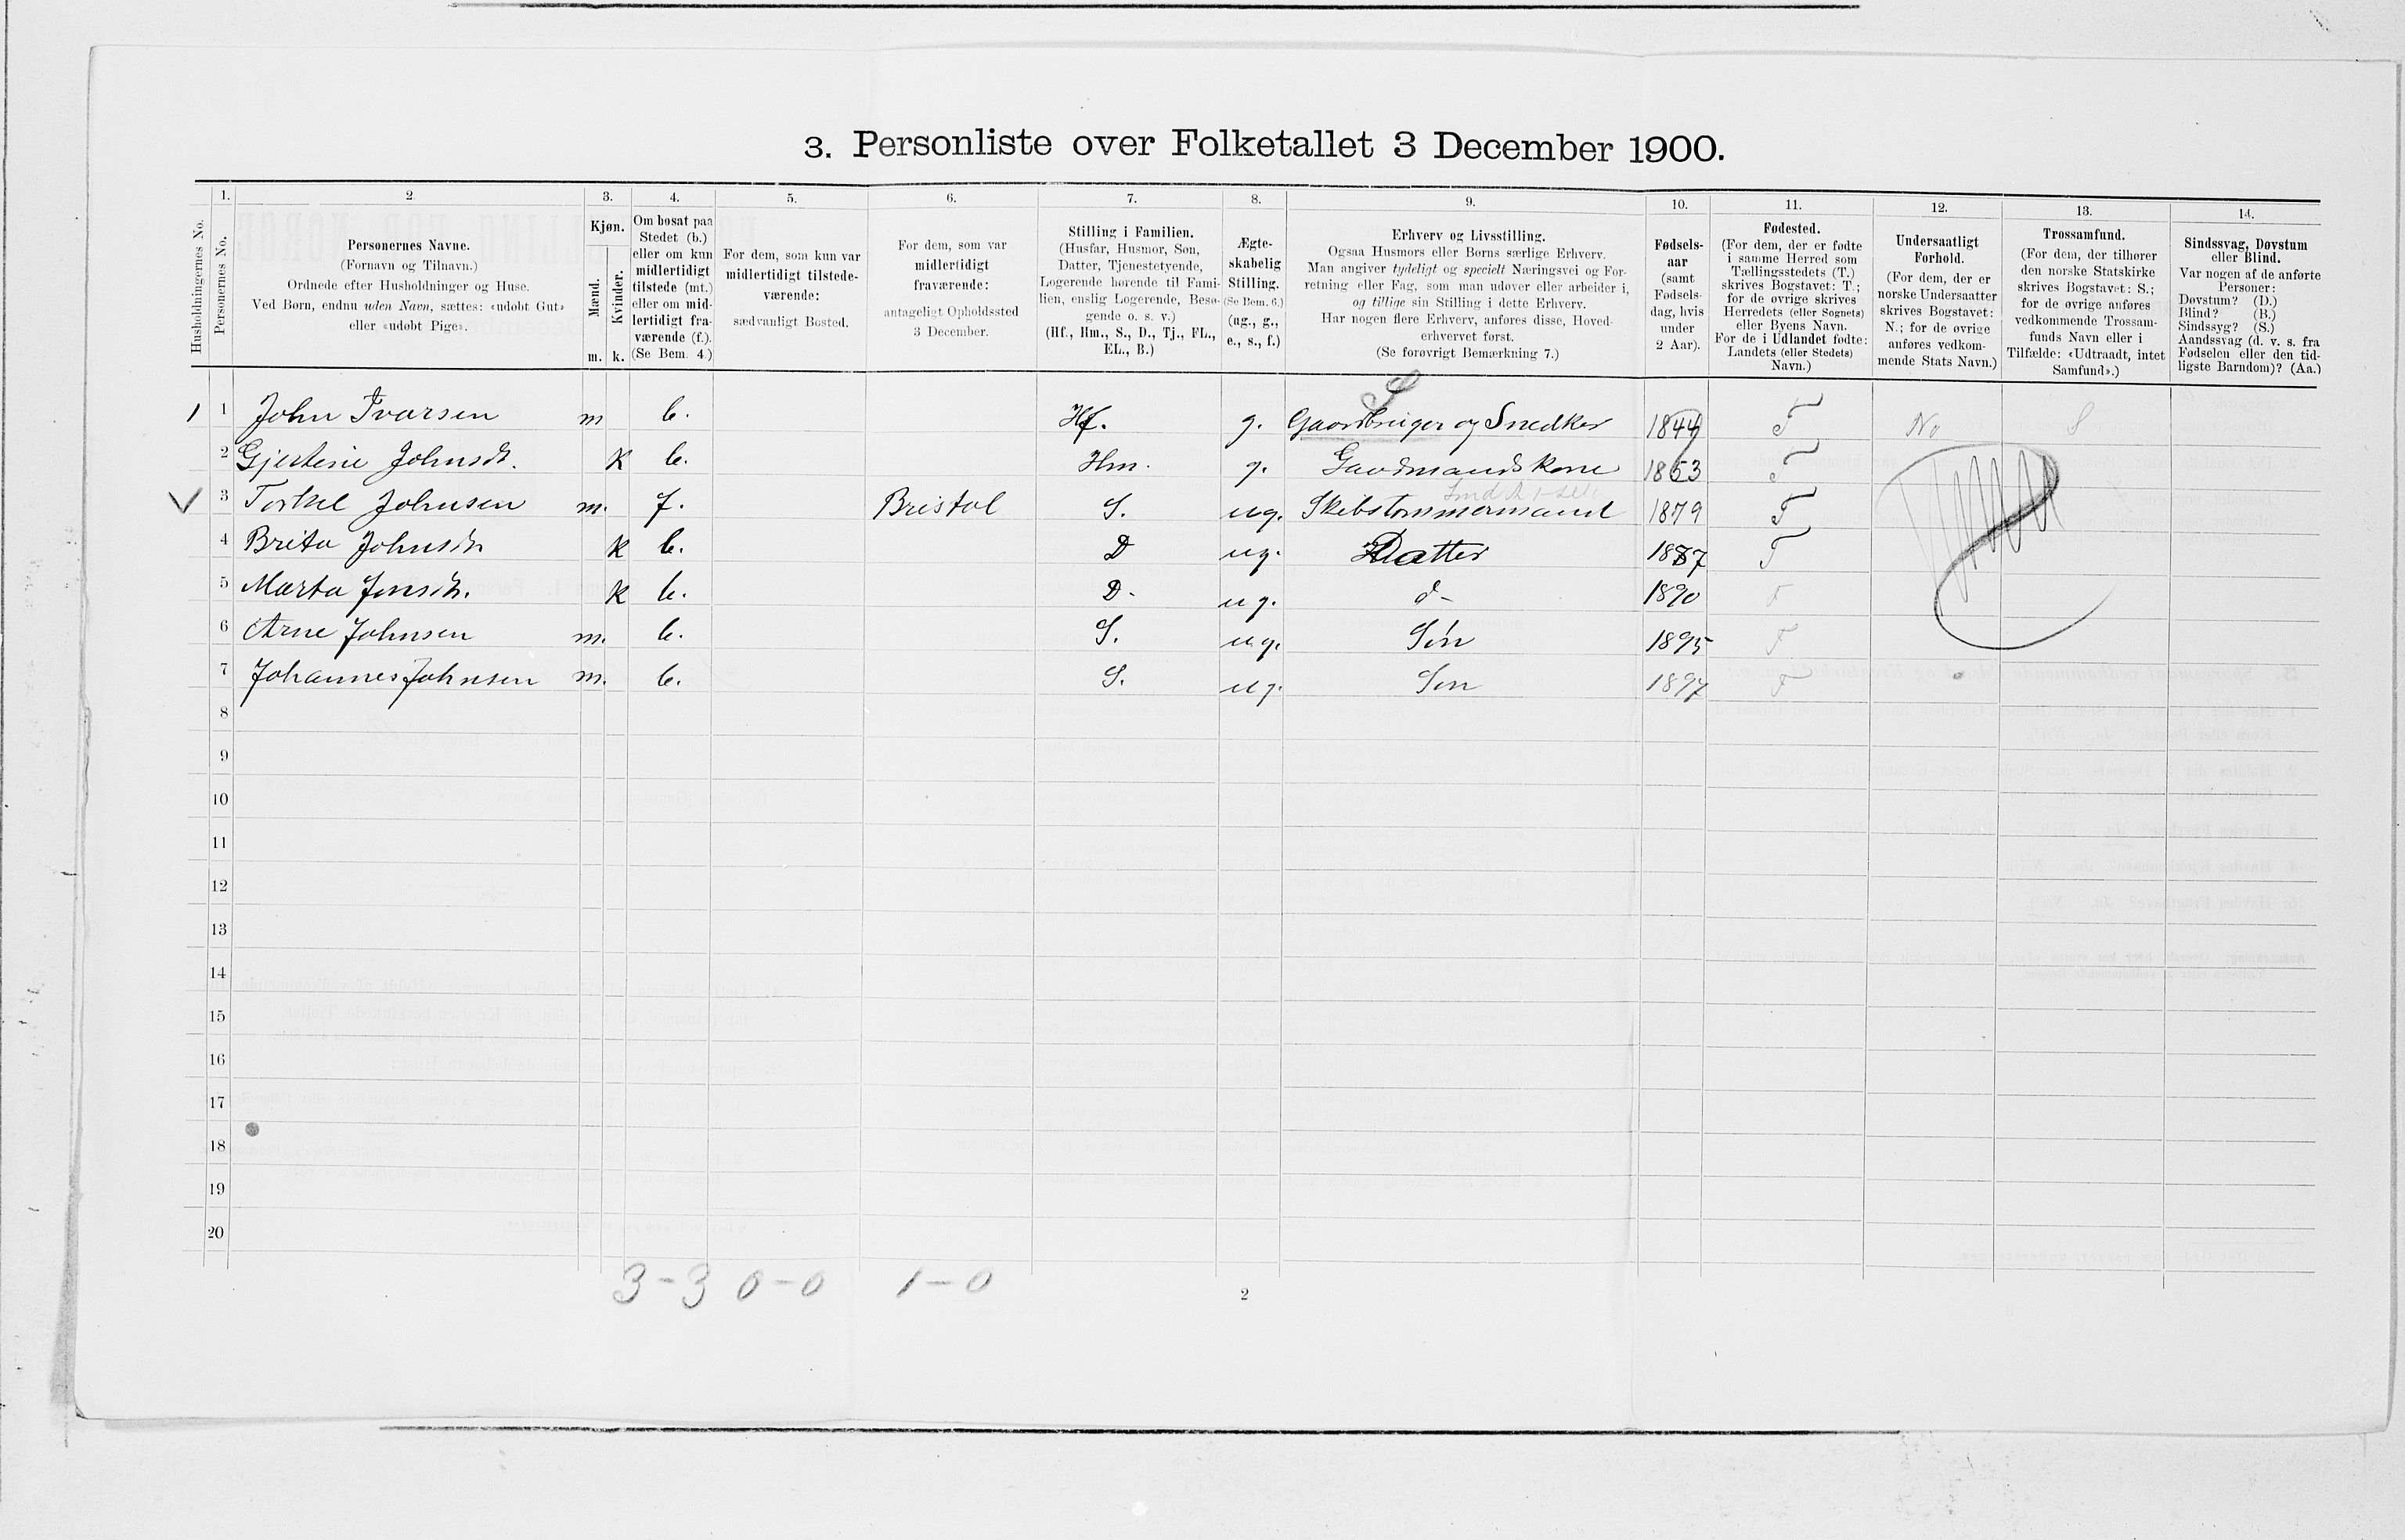 3. Personliste over Folketallet 3 December 1900.
1. 2 3. 4. 5. 6. 7. 8. 9. 10. 11. 12. 13. 14.
Husholdningernes No.
Personernes No.
Personernes Navne.
(Fornavn og Tilnavn.)
Ordnede efter Husholdninger og Huse.
Ved Børn, endnu uden Navn, sættes: «udøbt Gut»
eller «udøbt Pige».
Kjøn.
Mænd.
Kvinder.
m. k.
Om bosat paa
Stedet (b.)
eller om kun
midlertidigt
tilstede (mt.)
eller om mid-
lertidigt fra-
værende (f.).
(Se Bem. 4.)
For dem, som kun var
midlertidigt tilstede-
værende:
sædvanligt Bosted.
For dem, som var
midlertidigt
fraværende:
antageligt Opholdssted
3 December.
Stilling i Familien.
(Husfar, Husmor, Søn,
Datter, Tjenestetyende,
Logerende hørende til Fami-
lien, enslig Logerende, Besø-
gende o. s. v.)
(Hf., Hm., S., D., Tj., FL.,
EL., B.)
Ægte-
skabelig
Stilling.
(Se Bem. 6.)
(ug., g.,
e., s., f.)
Erhverv og Livsstilling.
Ogsaa Husmors eller Børns særlige Erhverv.
Man angiver tydeligt og specielt Næringsvei og For-
retning eller Fag, som man udøver eller arbeider i,
og tillige sin Stilling i dette Erhverv.
Har nogen flere Erhverv, anføres disse, Hoved-
erhvervet først.
(Se forøvrigt Bemærkning 7.)
Fødsels-
aar
(samt
Fødsels-
dag, hvis
under
2 Aar).
Fødested.
(For dem, der er fødte
i samme Herred som
Tællingsstedets (T.)
skrives Bogstavet: T.;
for de øvrige skrives
Herredets (eller Sognets)
eller Byens Navn.
For de i Udlandet fødte:
Landets (eller Stedets)
Navn.)
Undersaatligt
Forhold.
(For dem, der er
norske Undersaatter
skrives Bogstavet:
N.; for de øvrige
anføres vedkom-
mende Stats Navn.)
Trossamfund.
(For dem, der tilhører
den norske Statskirke
skrives Bogstavet: S.;
for de øvrige anføres
vedkommende Trossam-
funds Navn eller i
Tilfælde: «Udtraadt, intet
Samfund».)
Sindssvag, Døvstum
eller Blind.
Var nogen af de anførte
Personer:
Døvstum? (D.)
Blind? (B.)
Sindssyg? (S.)
Aandssvag (d. v. s. fra
Fødselen eller den tid-
ligste Barndom)? (Aa.)
S
1 1 John Ivarsen m b. Hf. g. Gaardbruger og Snedker 1844 T No S
2 Gjertine Johnsdt. K b. Hm. g. Gaardmandskone 1853 T
3 Torkel Johnsen m. f. Bristol S. ug. Skibstømmermand 1879 T
4 Brita Johnsdt K b. D ug. Datter 1887 T
5 Marta Jonsdt. K b. D - ug. d- 1890 T
6 Arne Johnsen m. b. S. ug. Søn 1895 T
7 Johannes Johnsen m. b. S. ug. Søn 1897 T
8
9
10
11
12
13
14
15
16
17
18
19
20
3-3 0-0 1-0
2